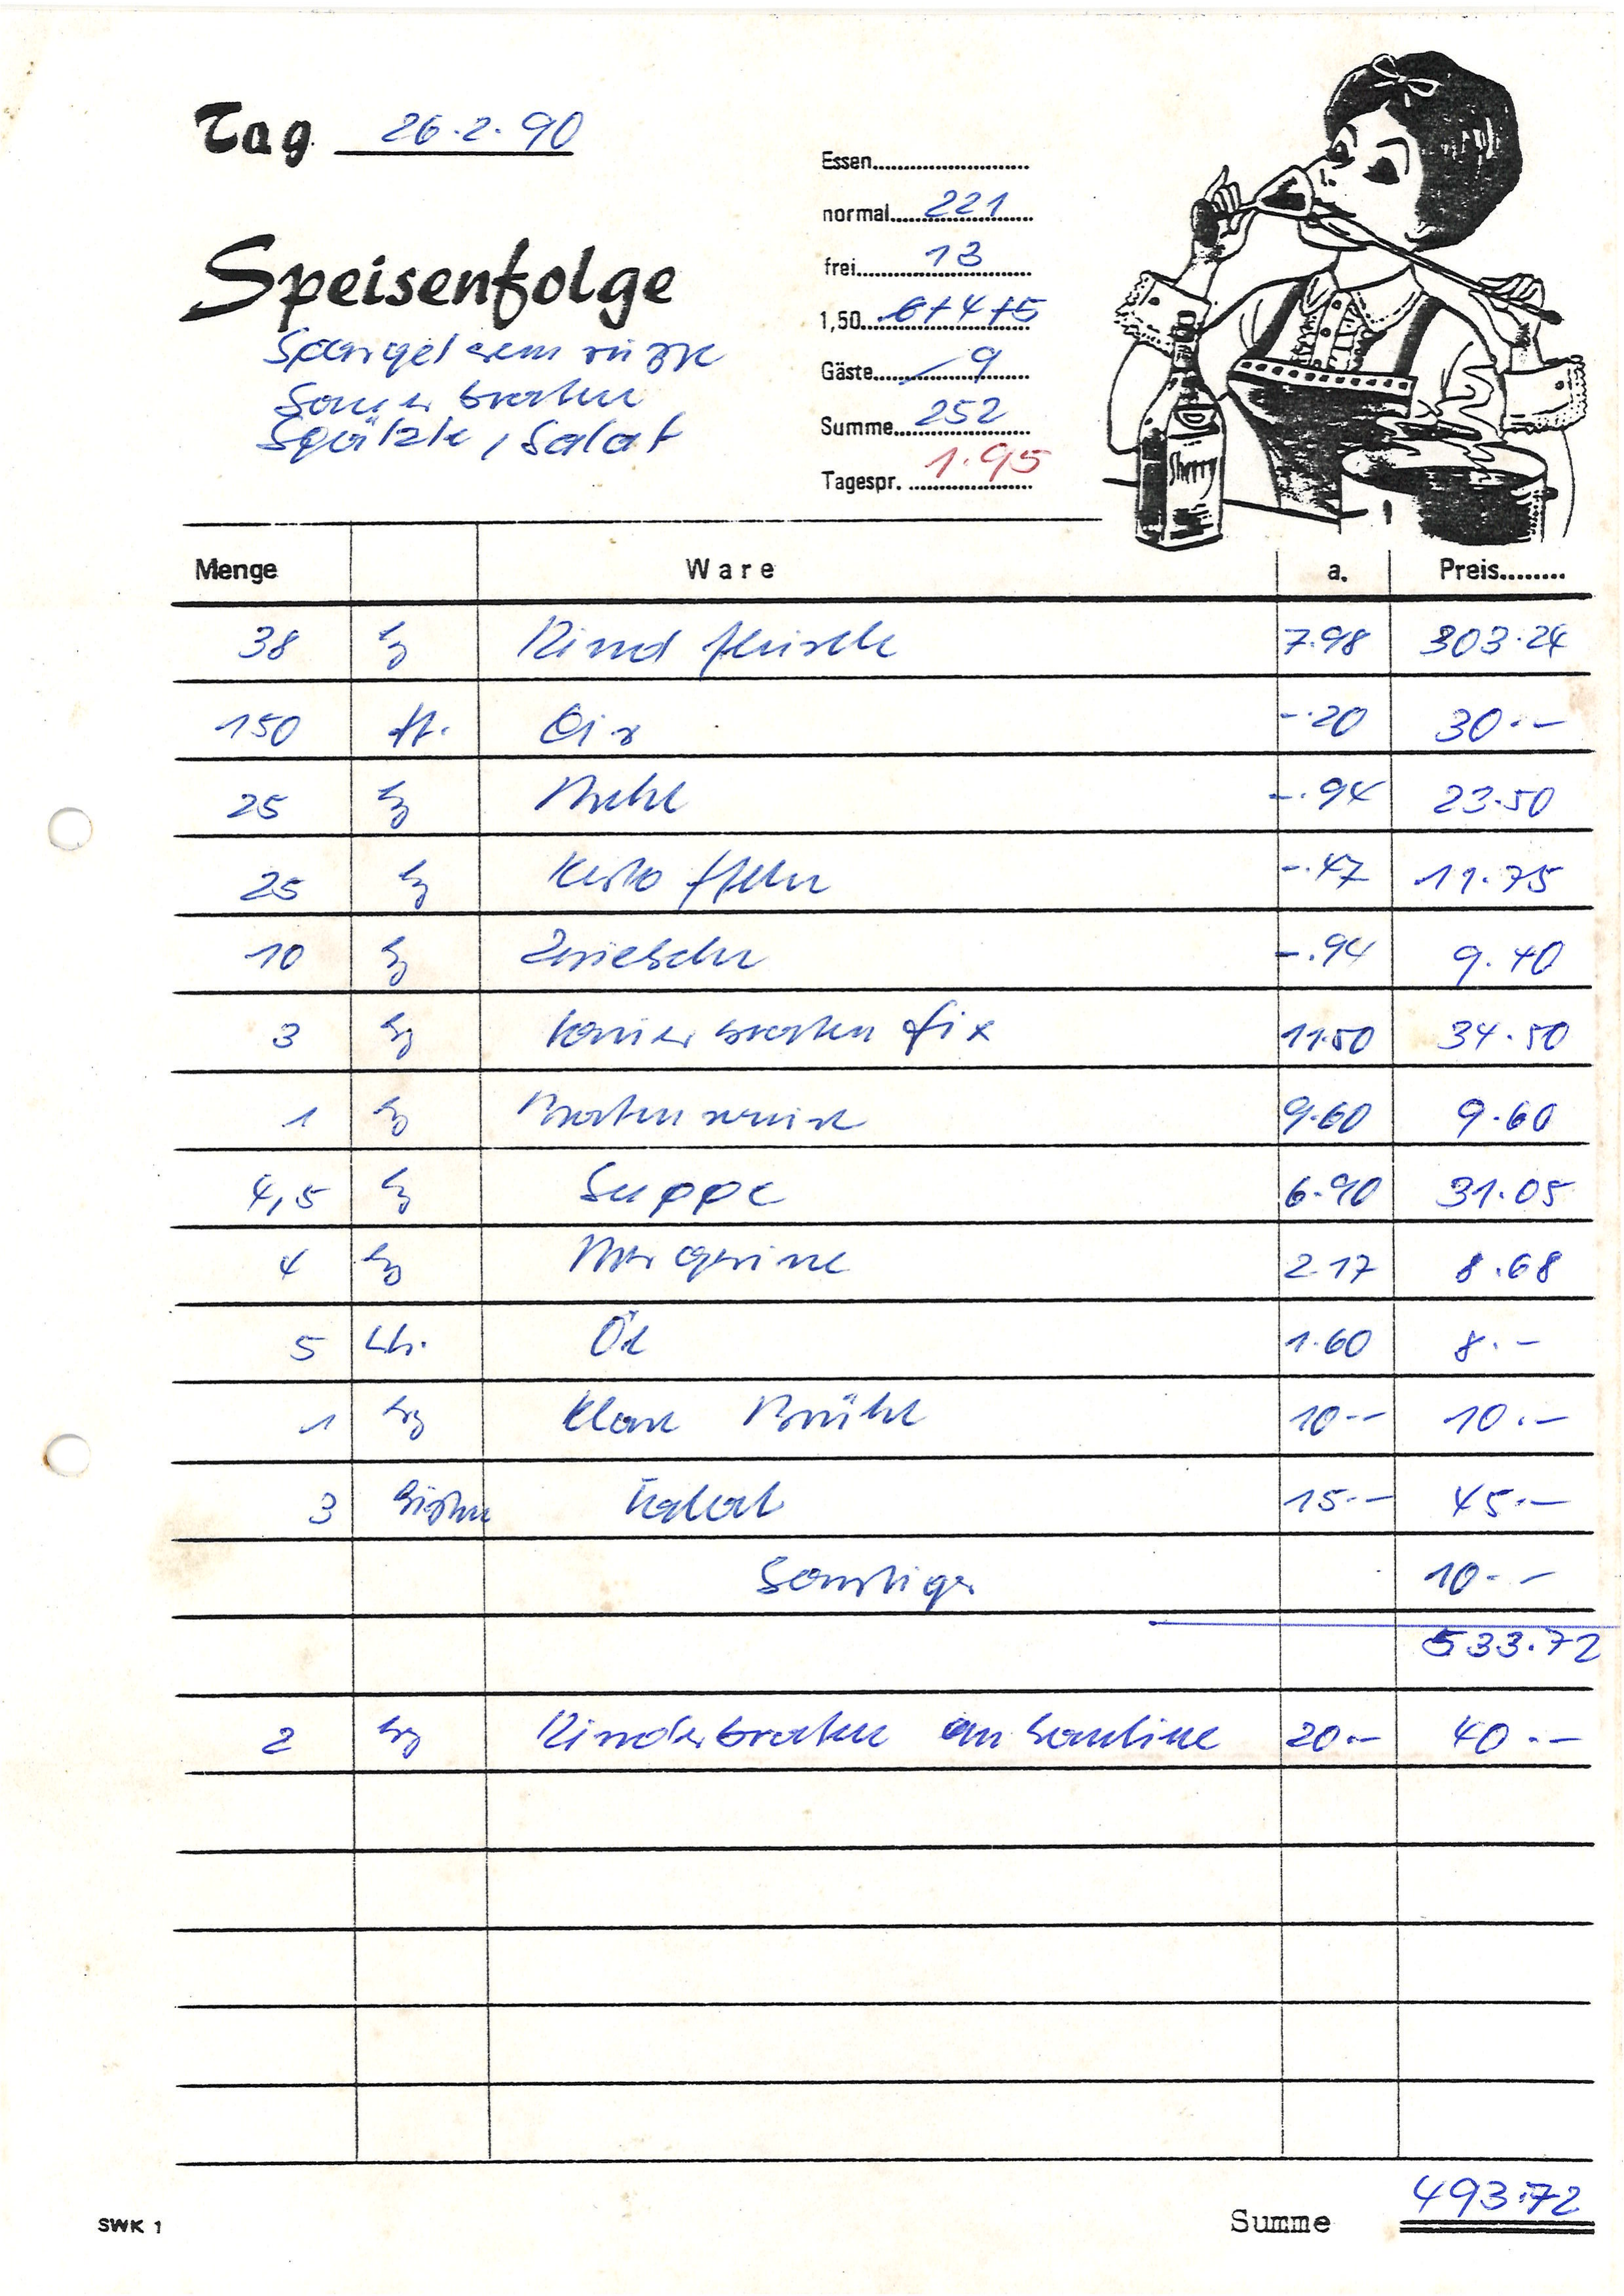 Tag 26.2.90
Speisenfolge
Spargelcremsuppe
Sauerbraten
Spätzle, Salat
Essen
normal 221
frei 13
1,50 6+4+5
Gäste 9
Summe 252
Tagespr. 1.95
Sherry
Menge Ware a. Preis
38 kg Rindfleisch 7.98 303.24
150 St. Eier -.20 30.-
25 kg Mehl -.94 23.50
25 kg Kartoffeln -.47 11.75
10 kg Zwiebeln -.94 9.40
3 kg Sauerbraten fix 11.50 34.50
1 kg 9.60 9.60
4,5 kg Suppe 6.90 31.05
4 kg Margarine 2.17 8.68
5 Ltr. Öl 1.60 8.-
1 kg Klare Brühe 10.- 10.-
3 Kisten Salat 15.- 45.-
Sonstiges 10.-
533.72
2 kg Rinderbraten an Kantine 20.- 40.-
Summe 493.72
SWK 1